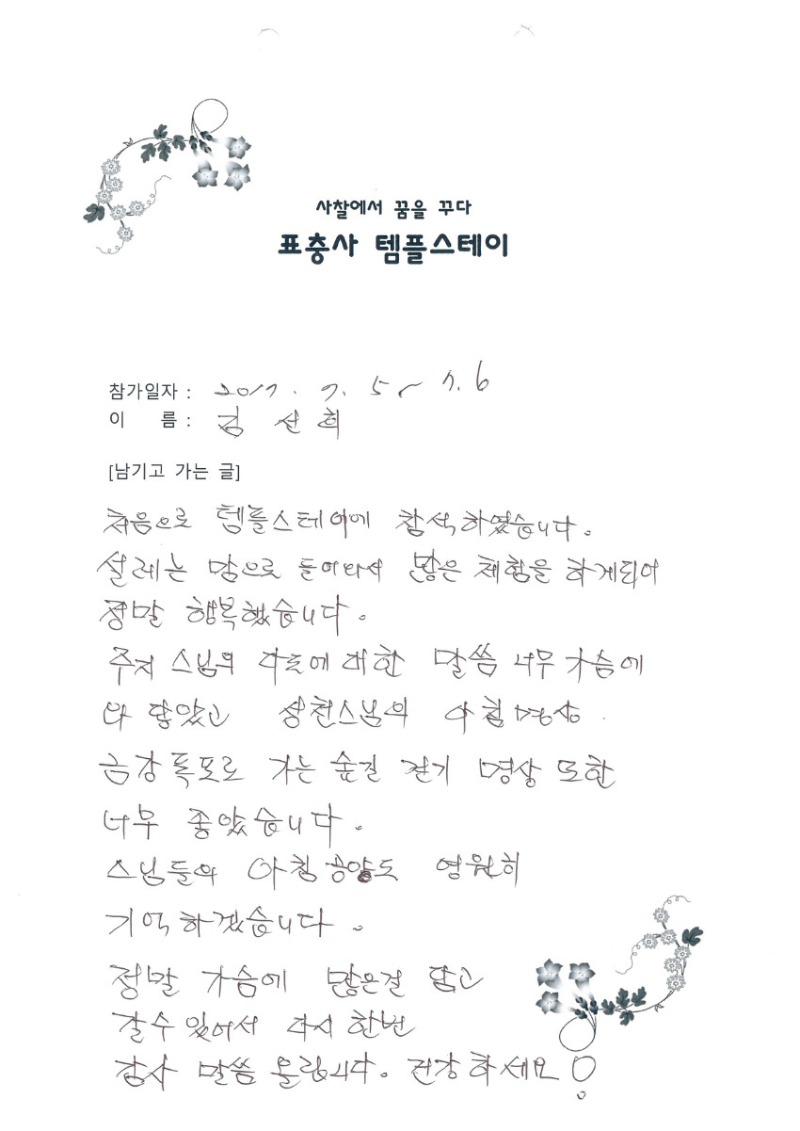 사찰에서 꿈을 꾸다
표충사 템플스테이
참가일자 : 2017. 7. 5 ~ 7. 6
이 름 : 김선희
[남기고 가는 글]
처음으로 템플스테이에 참석하였습니다.
설레는 맘으로 들어와서 많은 체험을 하게되어
정말 행복했습니다.
주지 스님의 다도에 대한 말씀 너무 가슴에
와 닿았고 성천스님의 아침 명상.
금강폭포로 가는 숲길 걷기 명상 또한
너무 좋았습니다.
스님들의 아침 공양도 영원히
기억하겠습니다.
정말 가슴에 많은걸 담고
갈수 있어서 다시 한번
감사 말씀 올립니다. 건강하세요!